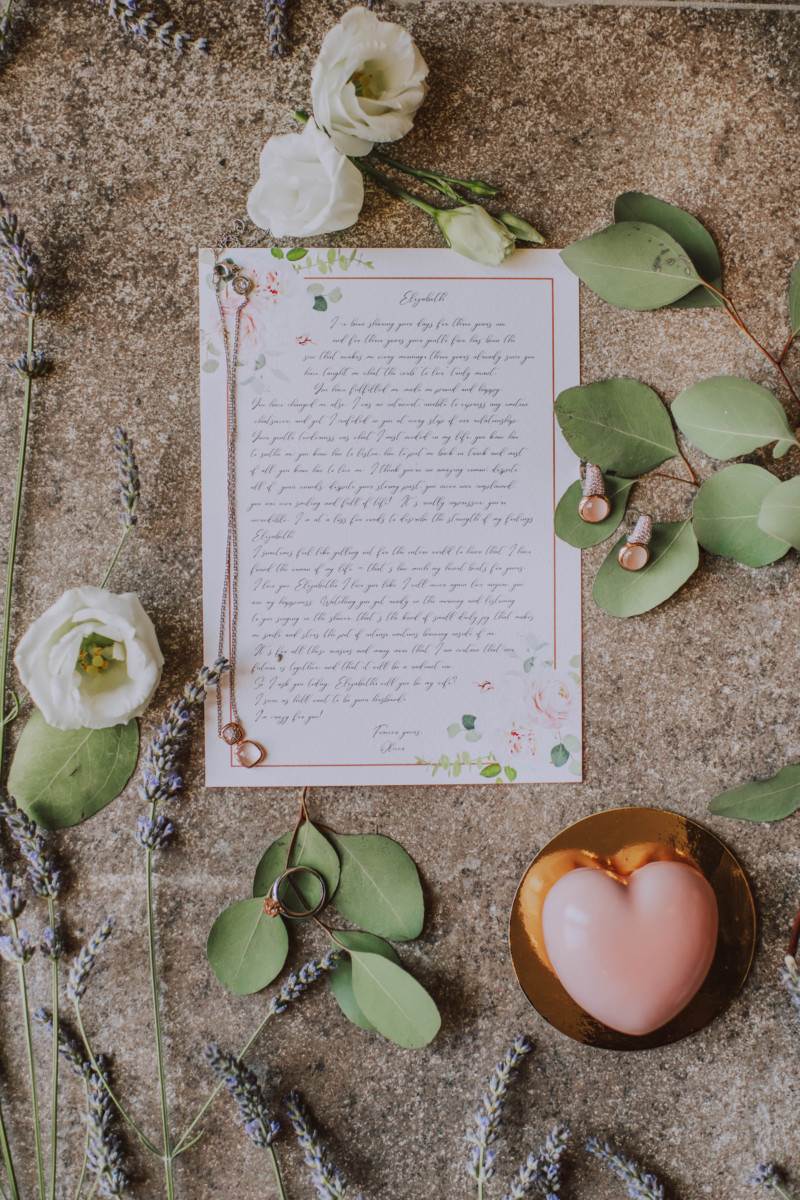 Elizabeth
I've been sharing your days for three years now
and for three years your gentle face has been the
sun that makes me every morning; three years already since you
have taught me what the verb 'to love' truly meant.
You have fulfilled me, made me proud and happy.
You have changed me also. I was an introvert, unable to express my
and yet, I in you at every step of our relationship.
Your gentle tenderness was what I most needed in my life, you knew how
to soothe me, you knew how to listen, how to put me back on track and most
of all, you knew how to love me. I think you're an amazing woman: despite
all of your wounds, despite your strong past, you never once complained,
you are ever smiling and full of life! It's really impressive, you're
incredible. I'm at a loss for words to describe the strength of my feelings
Elizabeth.
I sometimes feel like yelling out for the entire world to know that I have
found the woman of my life - that's how much my heart beats for yours.
I love you Elizabeth, I love you like I will never again love anyone, you
are my happiness. Watching you get ready in the morning and listening
to you singing in the shower, that's the kind of small daily joy that makes
me smile and stirs the pot of intense emotions burning inside of me.
It's for all these reasons and many more that I am certain that our
future is together and that it will be a radiant one.
So I ask you today, Elizabeth: will you be my wife?
I soon as hell want to be your husband.
I'm crazy for you!
Forever yours,